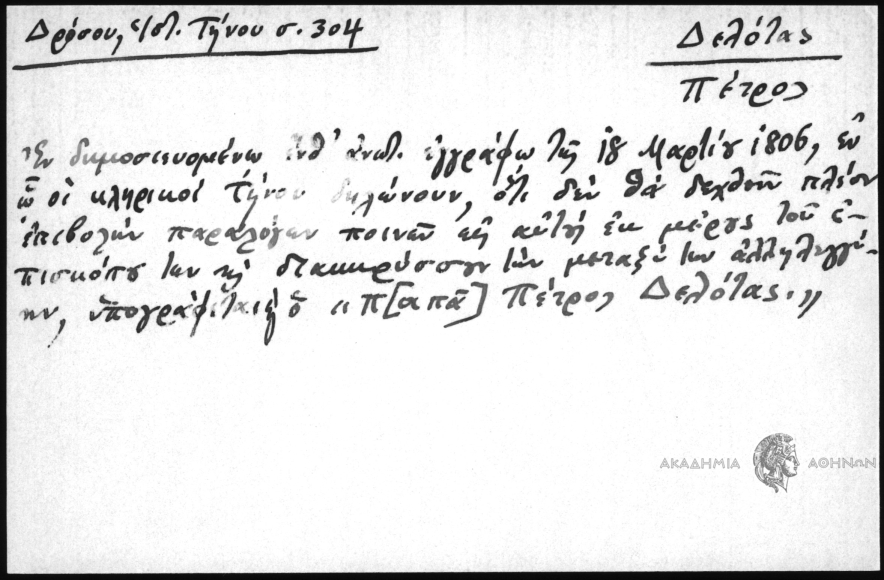 Δρόσου, ἱστ. Τήνου σ. 304
Δελότας
Πέτρος
Ἐν δημοσιευομένῳ ἐνθ' ἀνωτ. ἐγγράφῳ τῆς 18 Μαρτίου 1806, ἐν
ᾧ οἱ κληρικοί Τήνου δηλώνουν, ὅτι δέν θά δεχθοῦν πλέον
ἐπιβολήν παραλόγων ποινῶν εἰς αὐτούς ἐκ μέρους τοῦ ἐ-
πισκόπου των καί διακηρύσσουν τήν μεταξύ των ἀλληλεγγύ-
ην, ὑπογράφεται ὁ «Π[απᾶ] Πέτρος Δελότας.»
ΑΚΑΔΗΜΙΑ ΑΘΗΝΩΝ